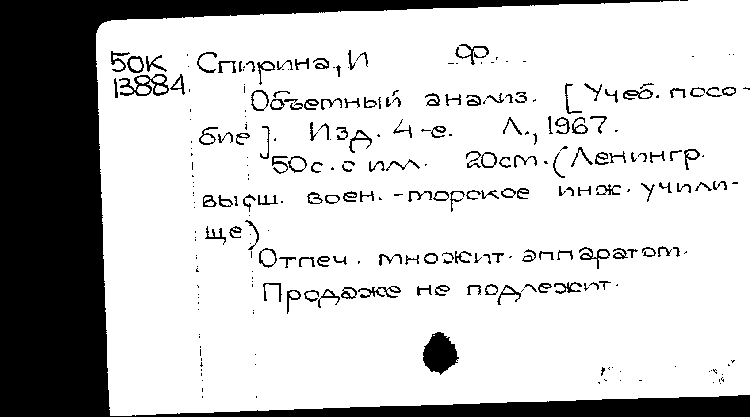 50К Спирина, И Ф.
13884
Объемный анализ. [Учеб. посо-
бие]. Изд. 4-е. Л., 1967.
50с. с илл. 20см. (Ленингр.
высш. воен.-морское инж. учили-
ще)
Отпеч. множит. аппаратом.
Продаже не подлежит.